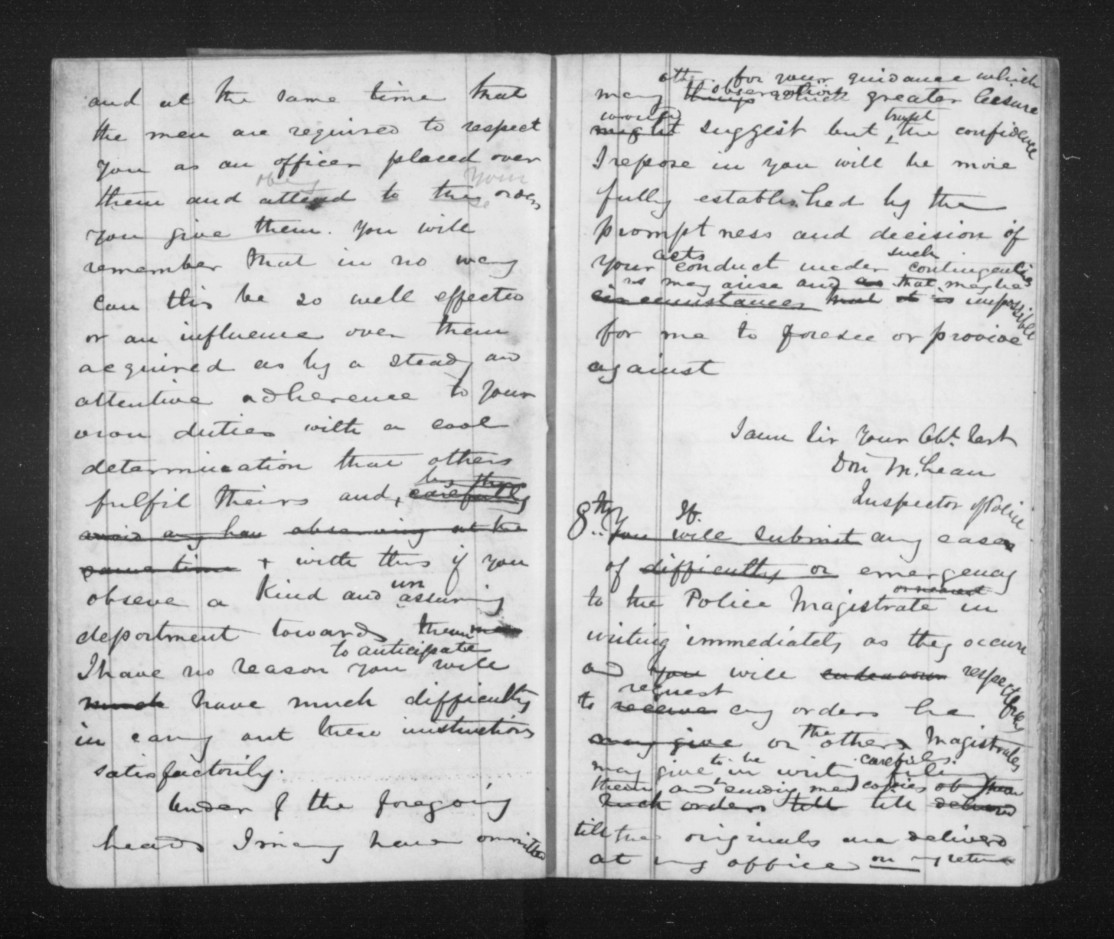 and at the same time that
the men are required to respect
you as an officer placed over
obey your
them and attend to the orders
you give them. You will
remember that in no way
can this be so well effected
or an influence over them
acquired as by a steady and
attentive adherence to your
own duties with a cool
determination that others
fulfil theirs and, carefully
observing at the
same time + with this if you
un
observe a kind and assuming
deportment towards them
to anticipate
I have no reason you will
much have much difficulty
in carrying out these instructions
satisfactorily.
Under of the foregoing
heads I may have omitted
other for your guidance which
observations
many things which greater leisure
would trust
might suggest but the confidence
I repose in you will be more
fully established by the
promptness and decision of
acts such
your conduct under contingencies
as may arise and as that may be
circumstances that it is impossible
for me to foresee or provide
against
I am Sir Your Obt. Servt
Don McLean
Inspector of Police
8thly If
You will submit any cases
of difficulty or emergency
or nearest
to the Police Magistrate in
writing immediately as they occur
and you will endeavour respectfully
request
to receive any orders he
may give or the other Magistrates
to be carefully
may give in writing filing
them and sending me copies of
such orders till till delivered
till the originals are delivered
at my office on my return